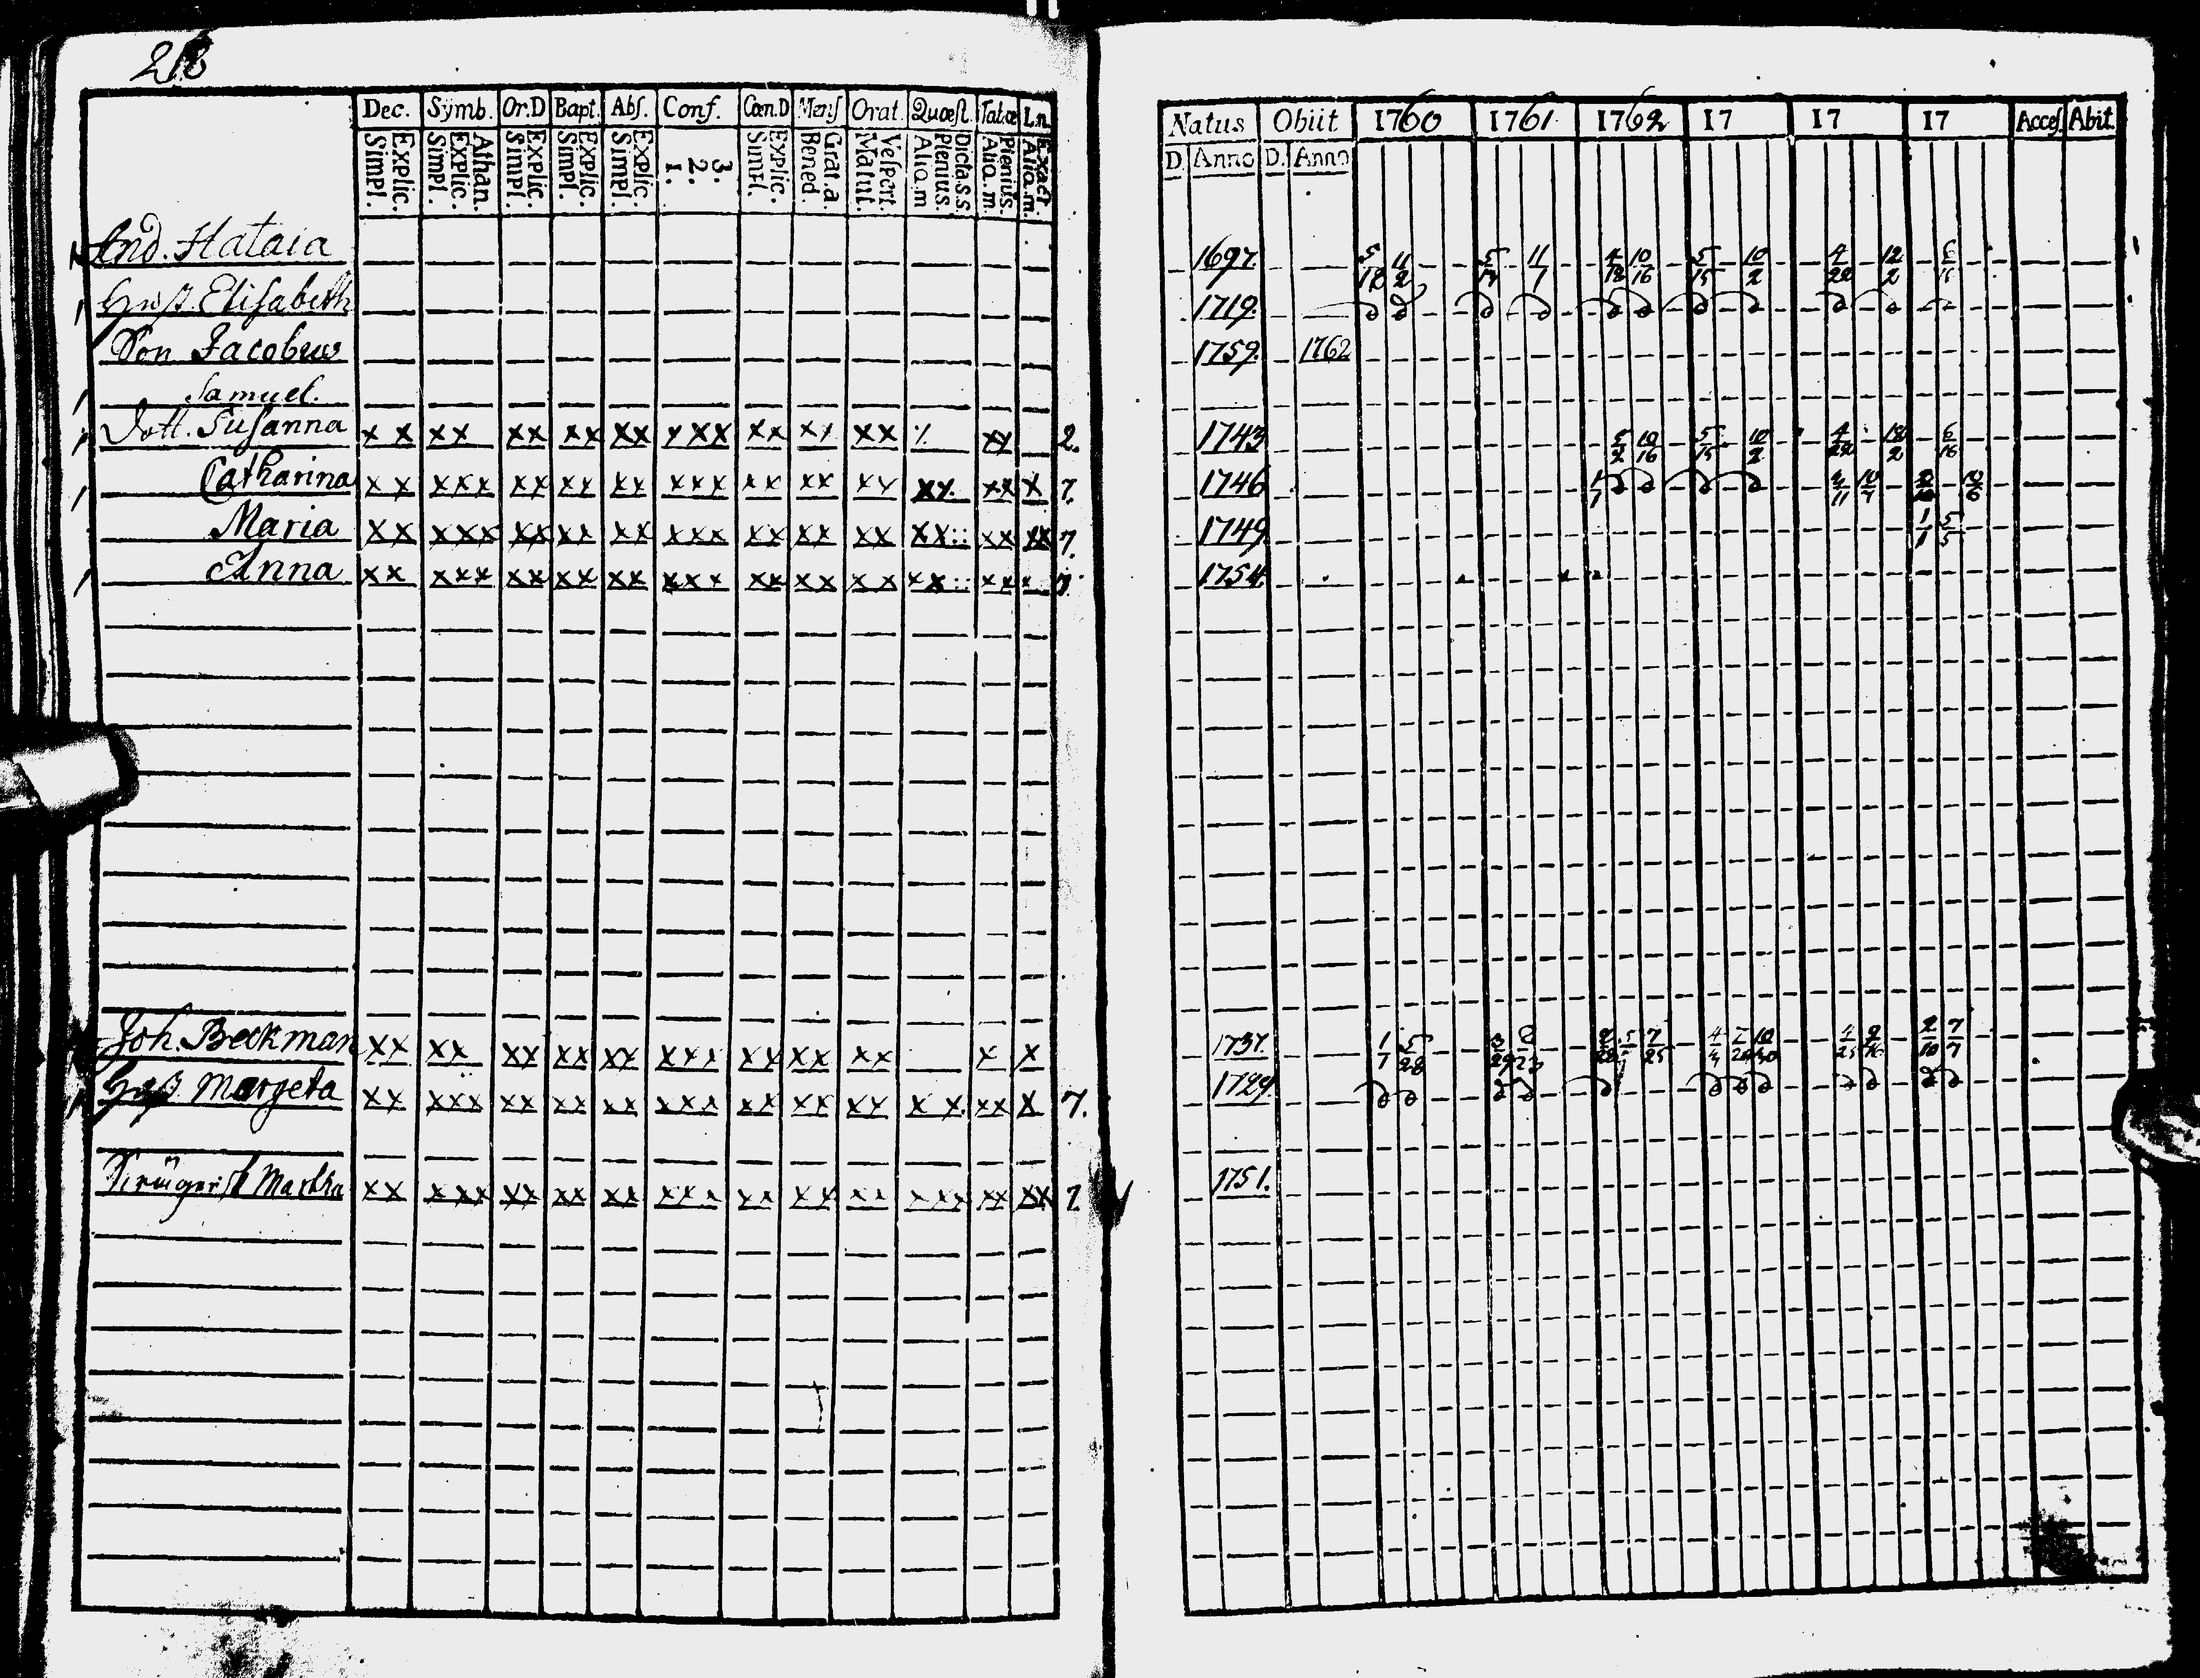 Dec. Symb. Or.D Bapt. Abs. Conf. Cœn.D Mens Orat. Quæst. Tabæ Ln
Explic. Simpl. Athan. Explic. Simpl. Explic. Simpl. Explic. Simpl. Explic. Simpl. 3. 2. 1. Explic. Simpl. Grat.a. Bened. Vespert. Matut. Dicta.s.s. Plenius. Aliq.m Plenius. Aliq.m. Exact Aliq.m.
And. Hataia
Hust. Elisabeth
Son Jacobus
Samuel.
Dott. Susanna x x xx xx xx xx xxx xx xx xx xx 2.
Catharina x x xxx xx xx xx xxx xx xx xx xx xx x 7.
Maria xx xxx xx xx xx xxx xx xx xx xx:: xx xx 7.
Anna xx xxx xx xx xx xxx xx xx xx xx:: xx x
Joh. Beckman xx xx xx xx xx xxx xx xx xx x x
Hust. Margeta xx xxx xx xx xx xxx xx xx xx xx xx x 7.
Martha xx xxx xx xx xx xxx xx xx xx xxx xx xx 7.
Natus Obiit 1760 1761. 1762 17 17 17 Acces. Abit.
D. Anno D. Anno
1697. 5/18 11/2 11/1 4/18 10/16 5/15 10/2 4/22 12/2
1719.
1759. 1762
1743 5/2 10/16 5/15 10/2 6/16
1746 1/7 10/7
1749 1/1 5/5
1754.
1737. 1/7 5/28 7/25 7/7
1729.
1751.